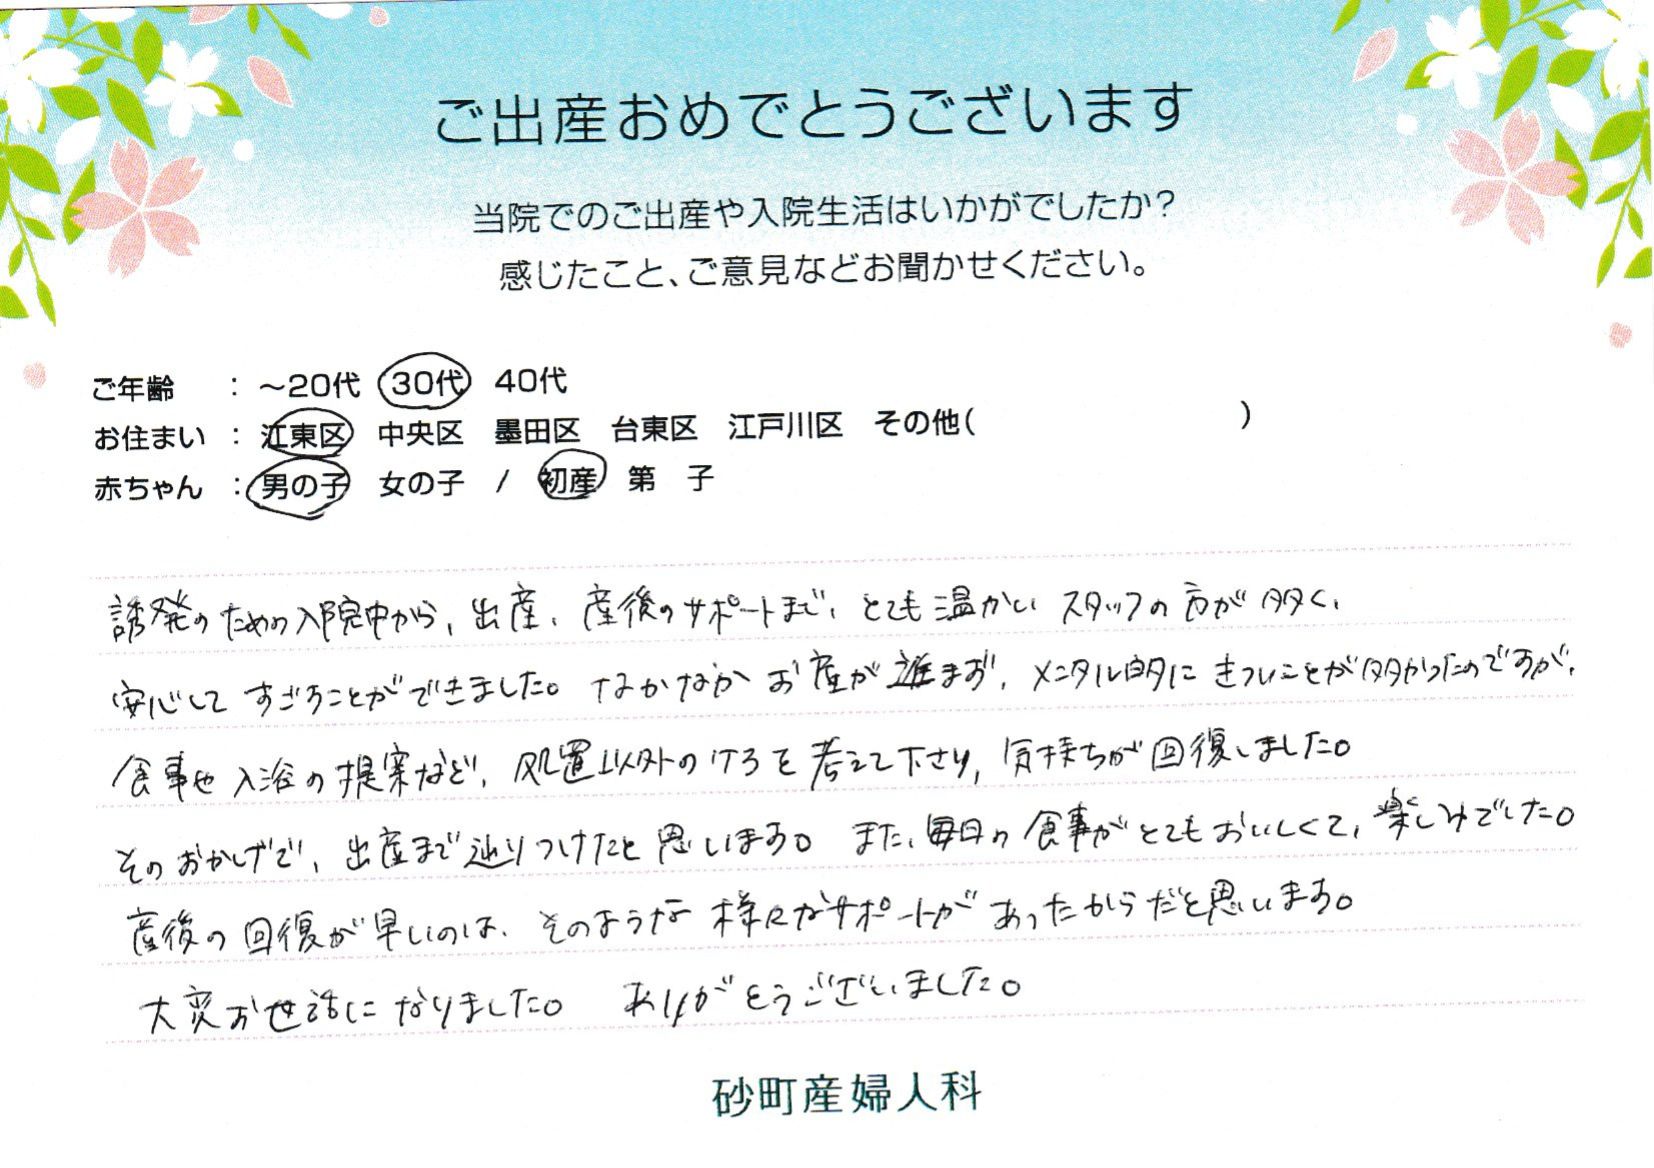 ご出産おめでとうございます
当院でのご出産や入院生活はいかがでしたか?
感じたこと、ご意見などお聞かせください。
ご年齢 : ～20代 30代 40代
お住まい : 江東区 中央区 墨田区 台東区 江戸川区 その他( )
赤ちゃん : 男の子 女の子 / 初産 第 子
誘発のための入院中から、出産、産後のサポートまで、とても温かい スタッフの方が多く、
安心して すごすことができました。なかなか お産が進まず、メンタル的に きついことが多かったのですが、
食事や入浴の提案など、処置以外のケアを考えて下さり、気持ちが回復しました。
そのおかげで、出産まで辿りつけたと思います。また、毎日の食事がとてもおいしくて、楽しみでした。
産後の回復が早いのは、そのような様々なサポートがあったからだと思います。
大変お世話になりました。 ありがとうございました。
砂町産婦人科